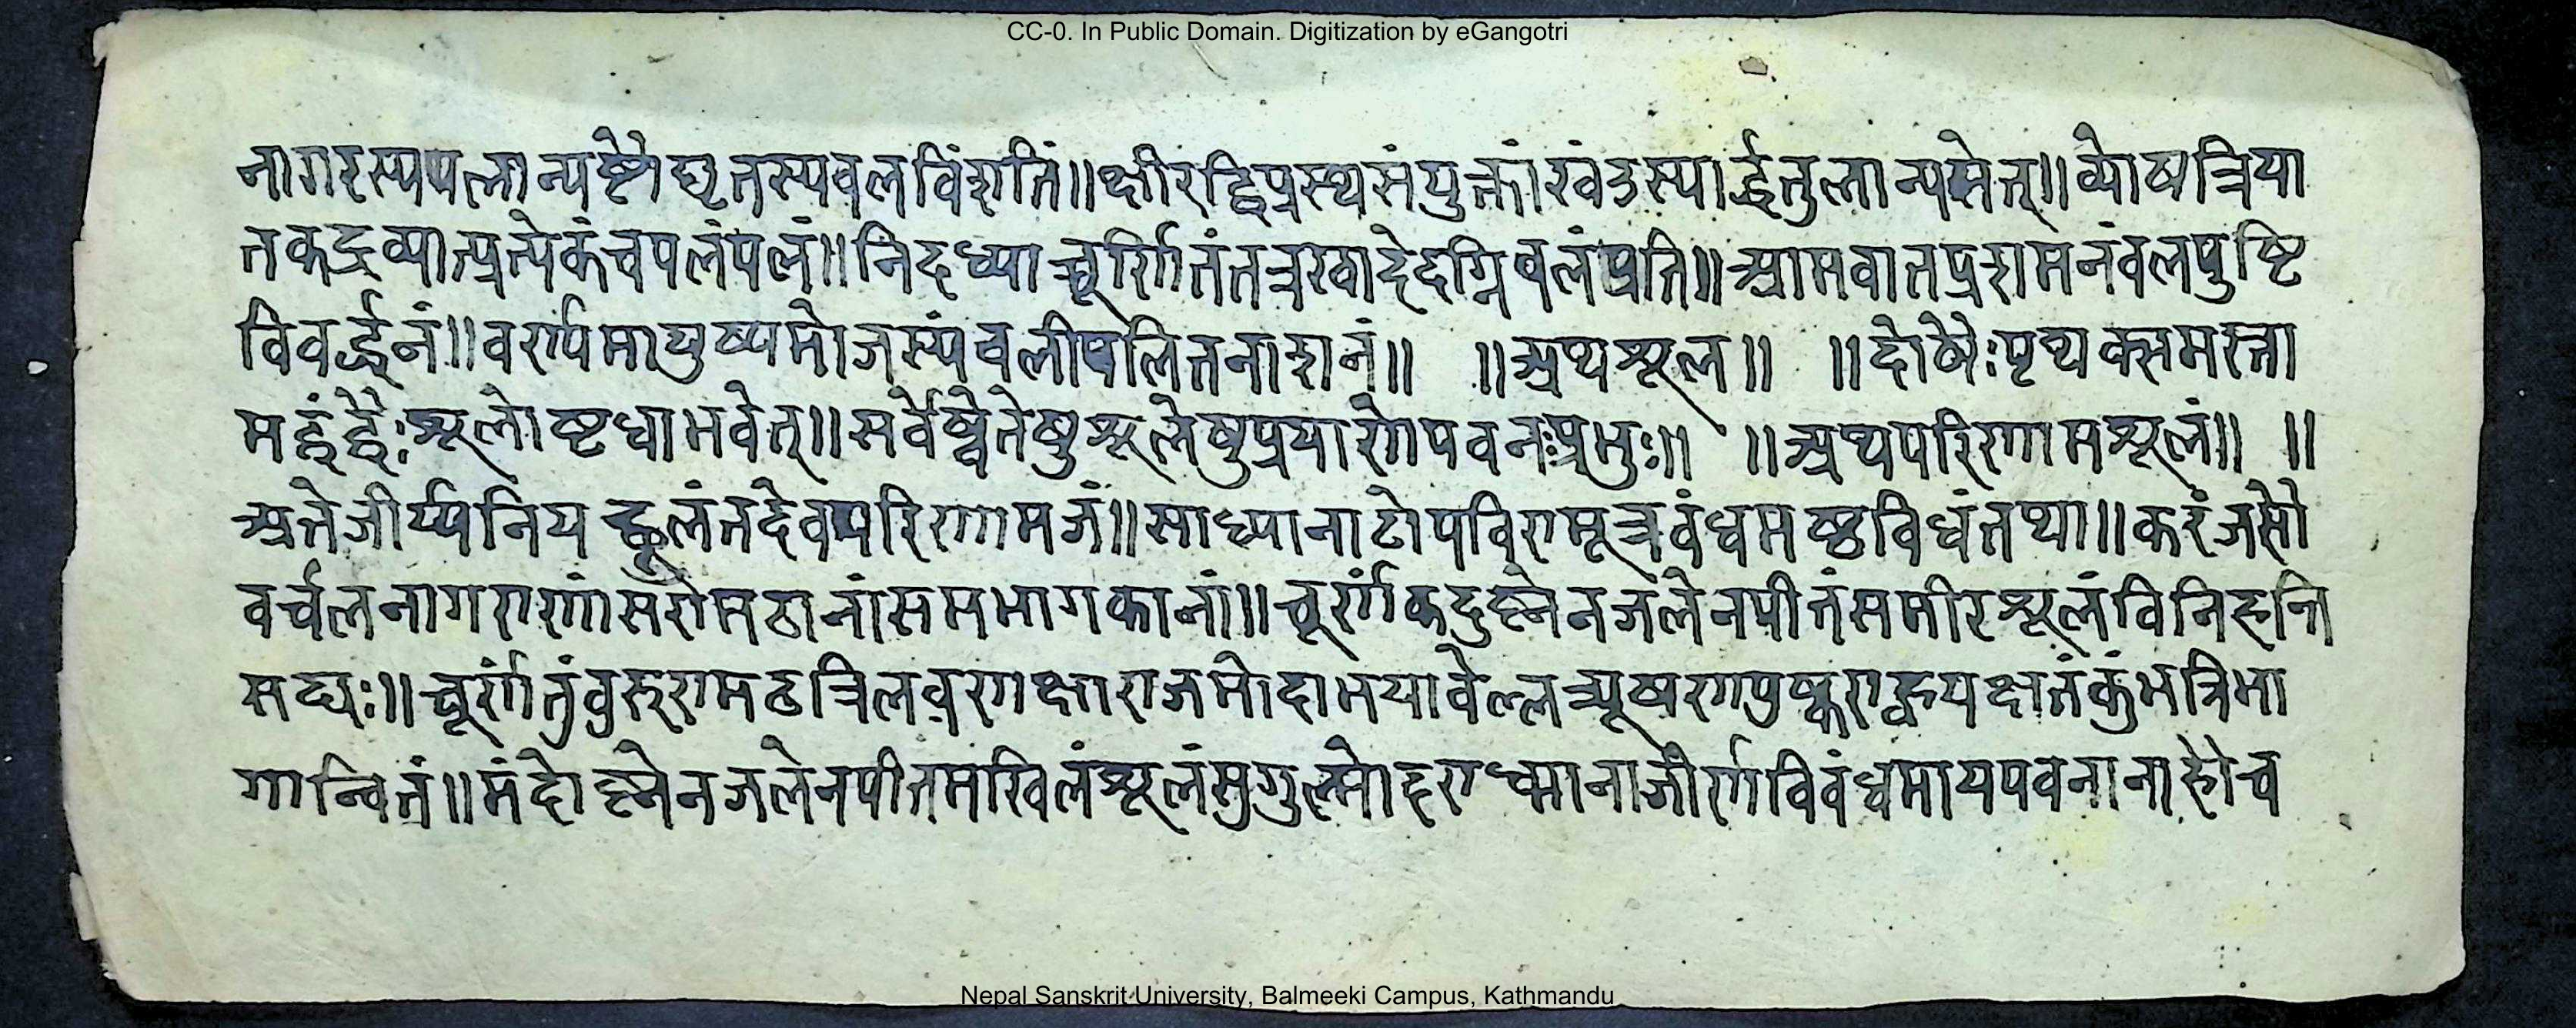 CC-0. In Public Domain. Digitization by eGangotri
नागरस्यपलान्यष्टौघृतस्यवलविंशतिं॥क्षीरद्विप्रस्थसंयुक्तांरवंडस्यार्द्धतुलान्यसेत्॥व्योषत्रिया
तकद्रव्यात्प्रत्येकंचपलंपलं॥निदध्याच्चूर्णितंतत्रखादेदग्निवलंप्रति॥आमवातप्रशमनंवलपुष्टि
विवर्द्धनं॥वर्ण्यमायुष्यमोजस्यंवलीपलितनाशनं॥ ॥अथशूल॥ ॥दोषैःपृथक्समस्ता
मद्वंद्वैःशूलोष्टधाभवेत्॥सर्वेष्वेतेषुशूलेषुप्रयाणेपवनःप्रभुः॥ ॥अथपरिणामशूलं॥ ॥
अत्तेजीर्य्यनियच्छूलंतदेवपरिणामजं॥साध्यानाटोपविण्मूत्रवंधमष्ठविधंतथा॥करंजसौ
वर्चलनागराणांसरामठानांसमभागकानां॥चूर्णंकदुह्नेनजलेनपीतंसमीरशूलंविनिहन्ति
सद्यः॥चूर्णंतुंवुरुरामठत्रिलवणक्षाराजमोदाभयावेल्लत्र्यूषणपुष्कराह्वयक्षतंकुंभत्रिभा
गान्वितं॥मंदोह्नेनजलेनपीतमाखिलंशूलंसगुल्मोहराध्मानाजीर्णविवंधमायपवनानाहौच
Nepal Sanskrit University, Balmeeki Campus, Kathmandu